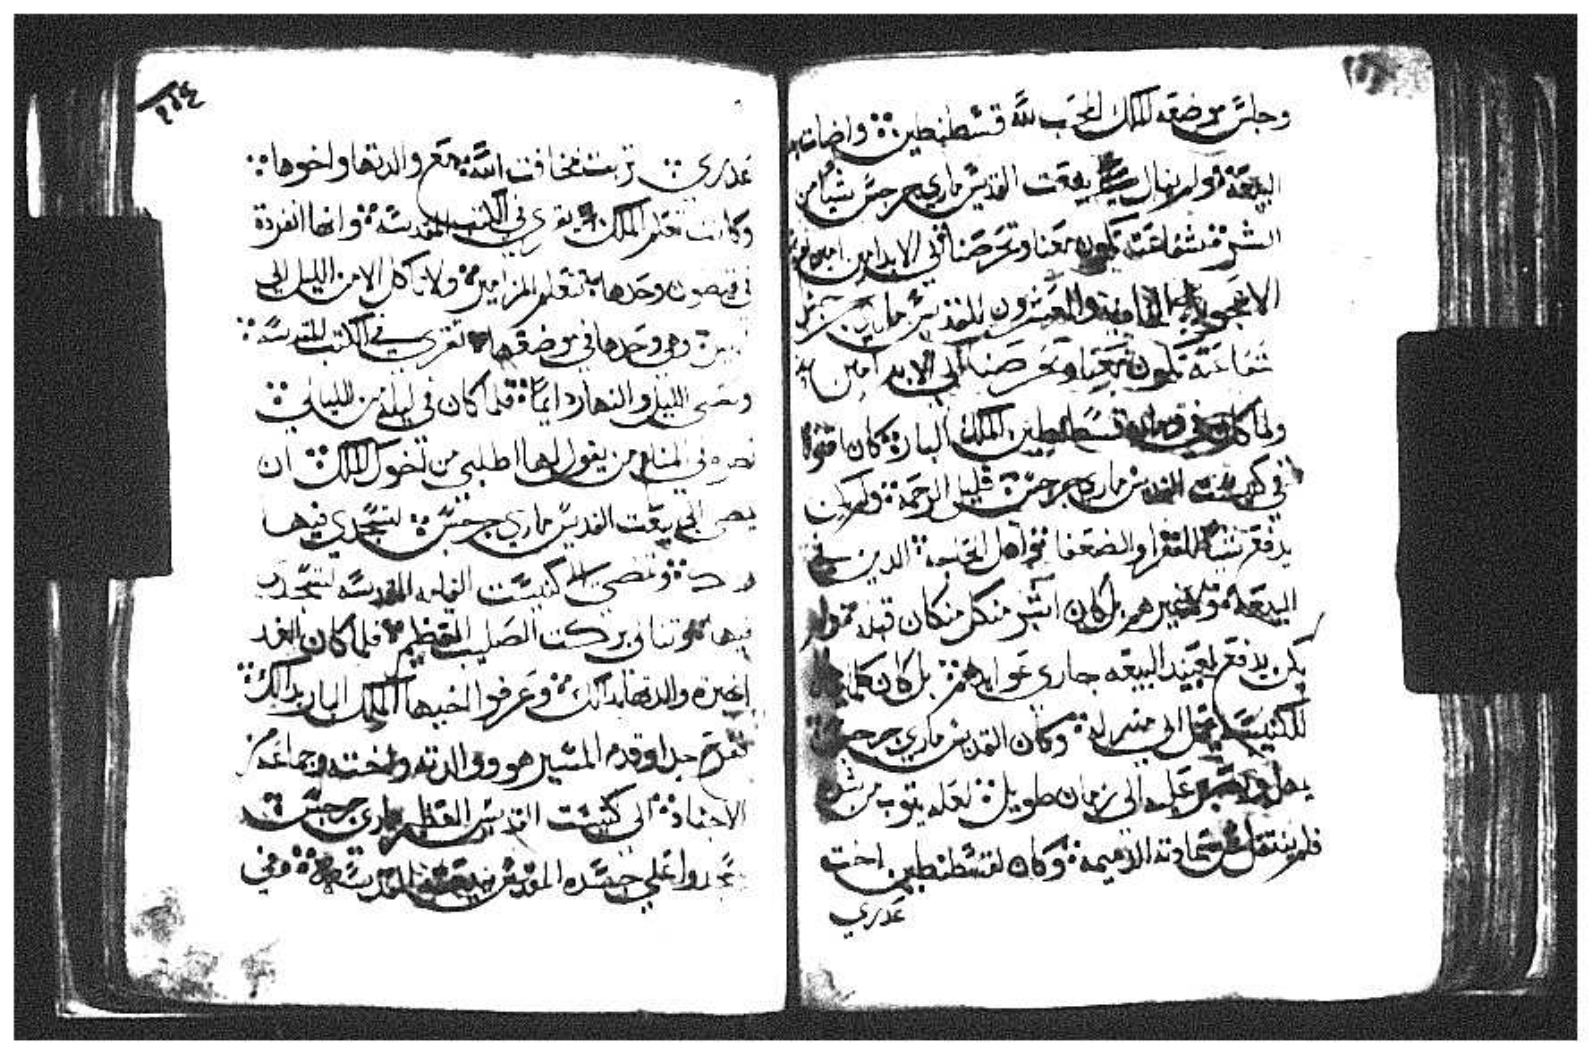 وجلس موضعه الملك المحب لله قسطنطين واضات
البيعة ولم ينال بيعت القديس ماري جرجس شيا من
الشر شفاعته تكون معنا وتحرصنا الي الابد امين امين
الاعجوبة الثامنة والعشرون للقديس ماري جرجس
شفاعته تكون معنا وتحرصنا الي الابد امين
ولما كان في زمان قسطنطين الملك البار كان اقنوم
في كنيست القديس ماري جرجس قليل الرحمة ولم يكن
يدفع شيا للفقرا والضعفا الدين في
البيعة ولا غيرهم بل كان اشر من كل من كان قبله ولم
يكن يدفع لعبيد البيعه جاري عوايدهم بل كان كلما
للكنيسة الي منزله وكان القديس ماري جرجس
عليه الي زمان طويل لعله يتوب من شره
فلم ينتقل الدميمة وكان لقسطنطين اخت
عدري
٢٥٤
عدري تربت بمخافت الله مع والدتها واخوها
وكانت تعلم الملك يقري في الكتب المقدسة وانها انفردة
في وحدها تتعلم المزامير ولا تاكل الا من الليل الي
وهي وحدها في موضعها تقري في الكتب المقدسة
الليل والنهار دايما فلما كان في ليلة من الليالي
في المنام من يقول لها اطلبي من اخوك الملك ان
يمضي الي بيعت القديس ماري جرجس لتسجدي فيها
وتمضي الي كنيست القيامه المقدسه لتسجدي
فيها وتنالي بركت الصليب العظيم فلما كان الغد
والدتها بدالك وعرفوا اخيها الملك البار بدالك
جدا وقدم المسير هو ووالدته واخته وجماعة
الاجناد الي كنيست القديس العظيم ماري جرجس
علي جسده المقدس المقدسة وفي